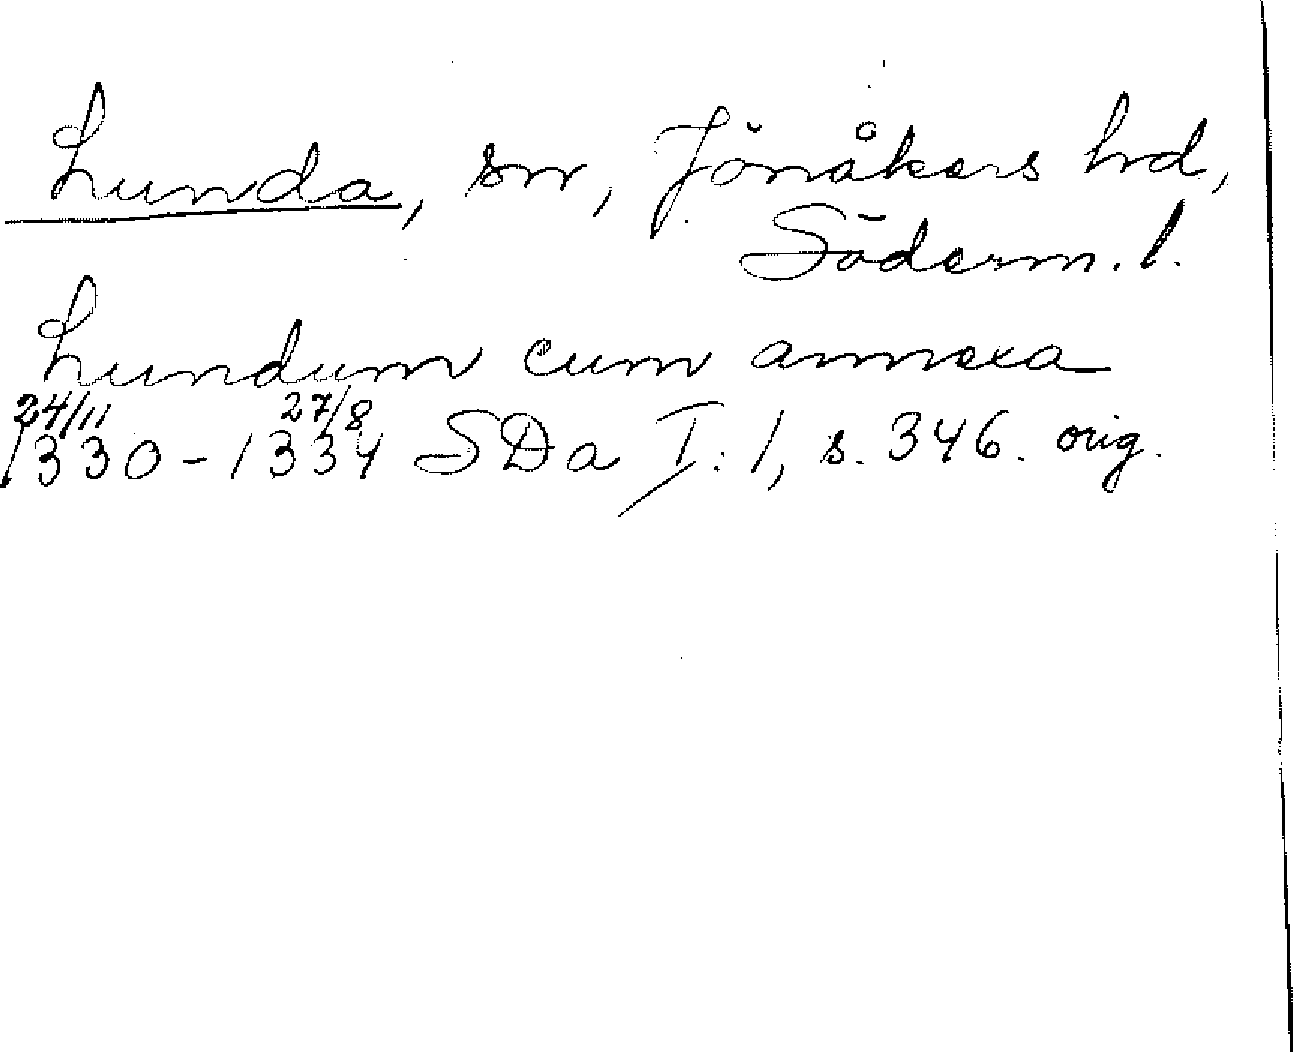 Lunda, sn, Jönåkers hd,
Söderm. l.
Lundum cum annexa
24/11 27/8
1330-1334 SDa I: 1, s. 346. orig.